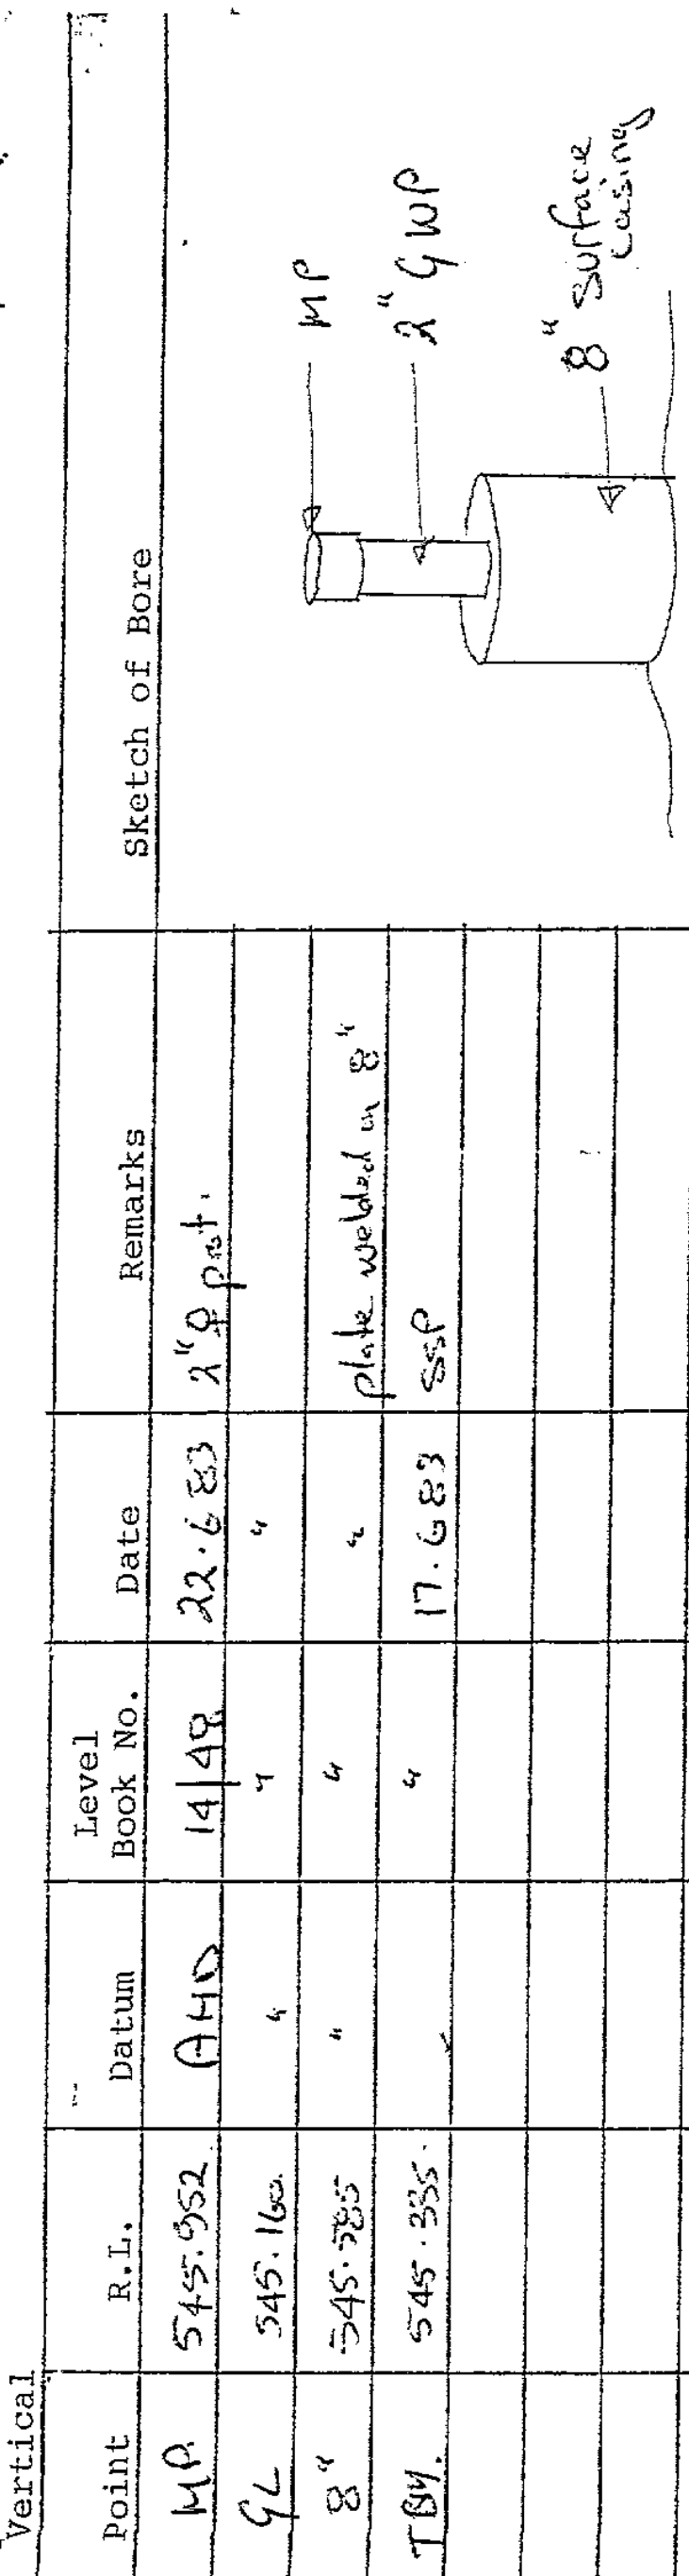 Vertical
Point R.L. Datum Level Book No. Date Remarks Sketch of Bore
MP. 545.952 AHD 14/49 22.6 83 2"
GL 545.160 " " "
8" 545.585 " " " plate welded on 8"
TBM. 545.335. " 17.6 83 SSP
MP
2" GWP
8" surface
casing